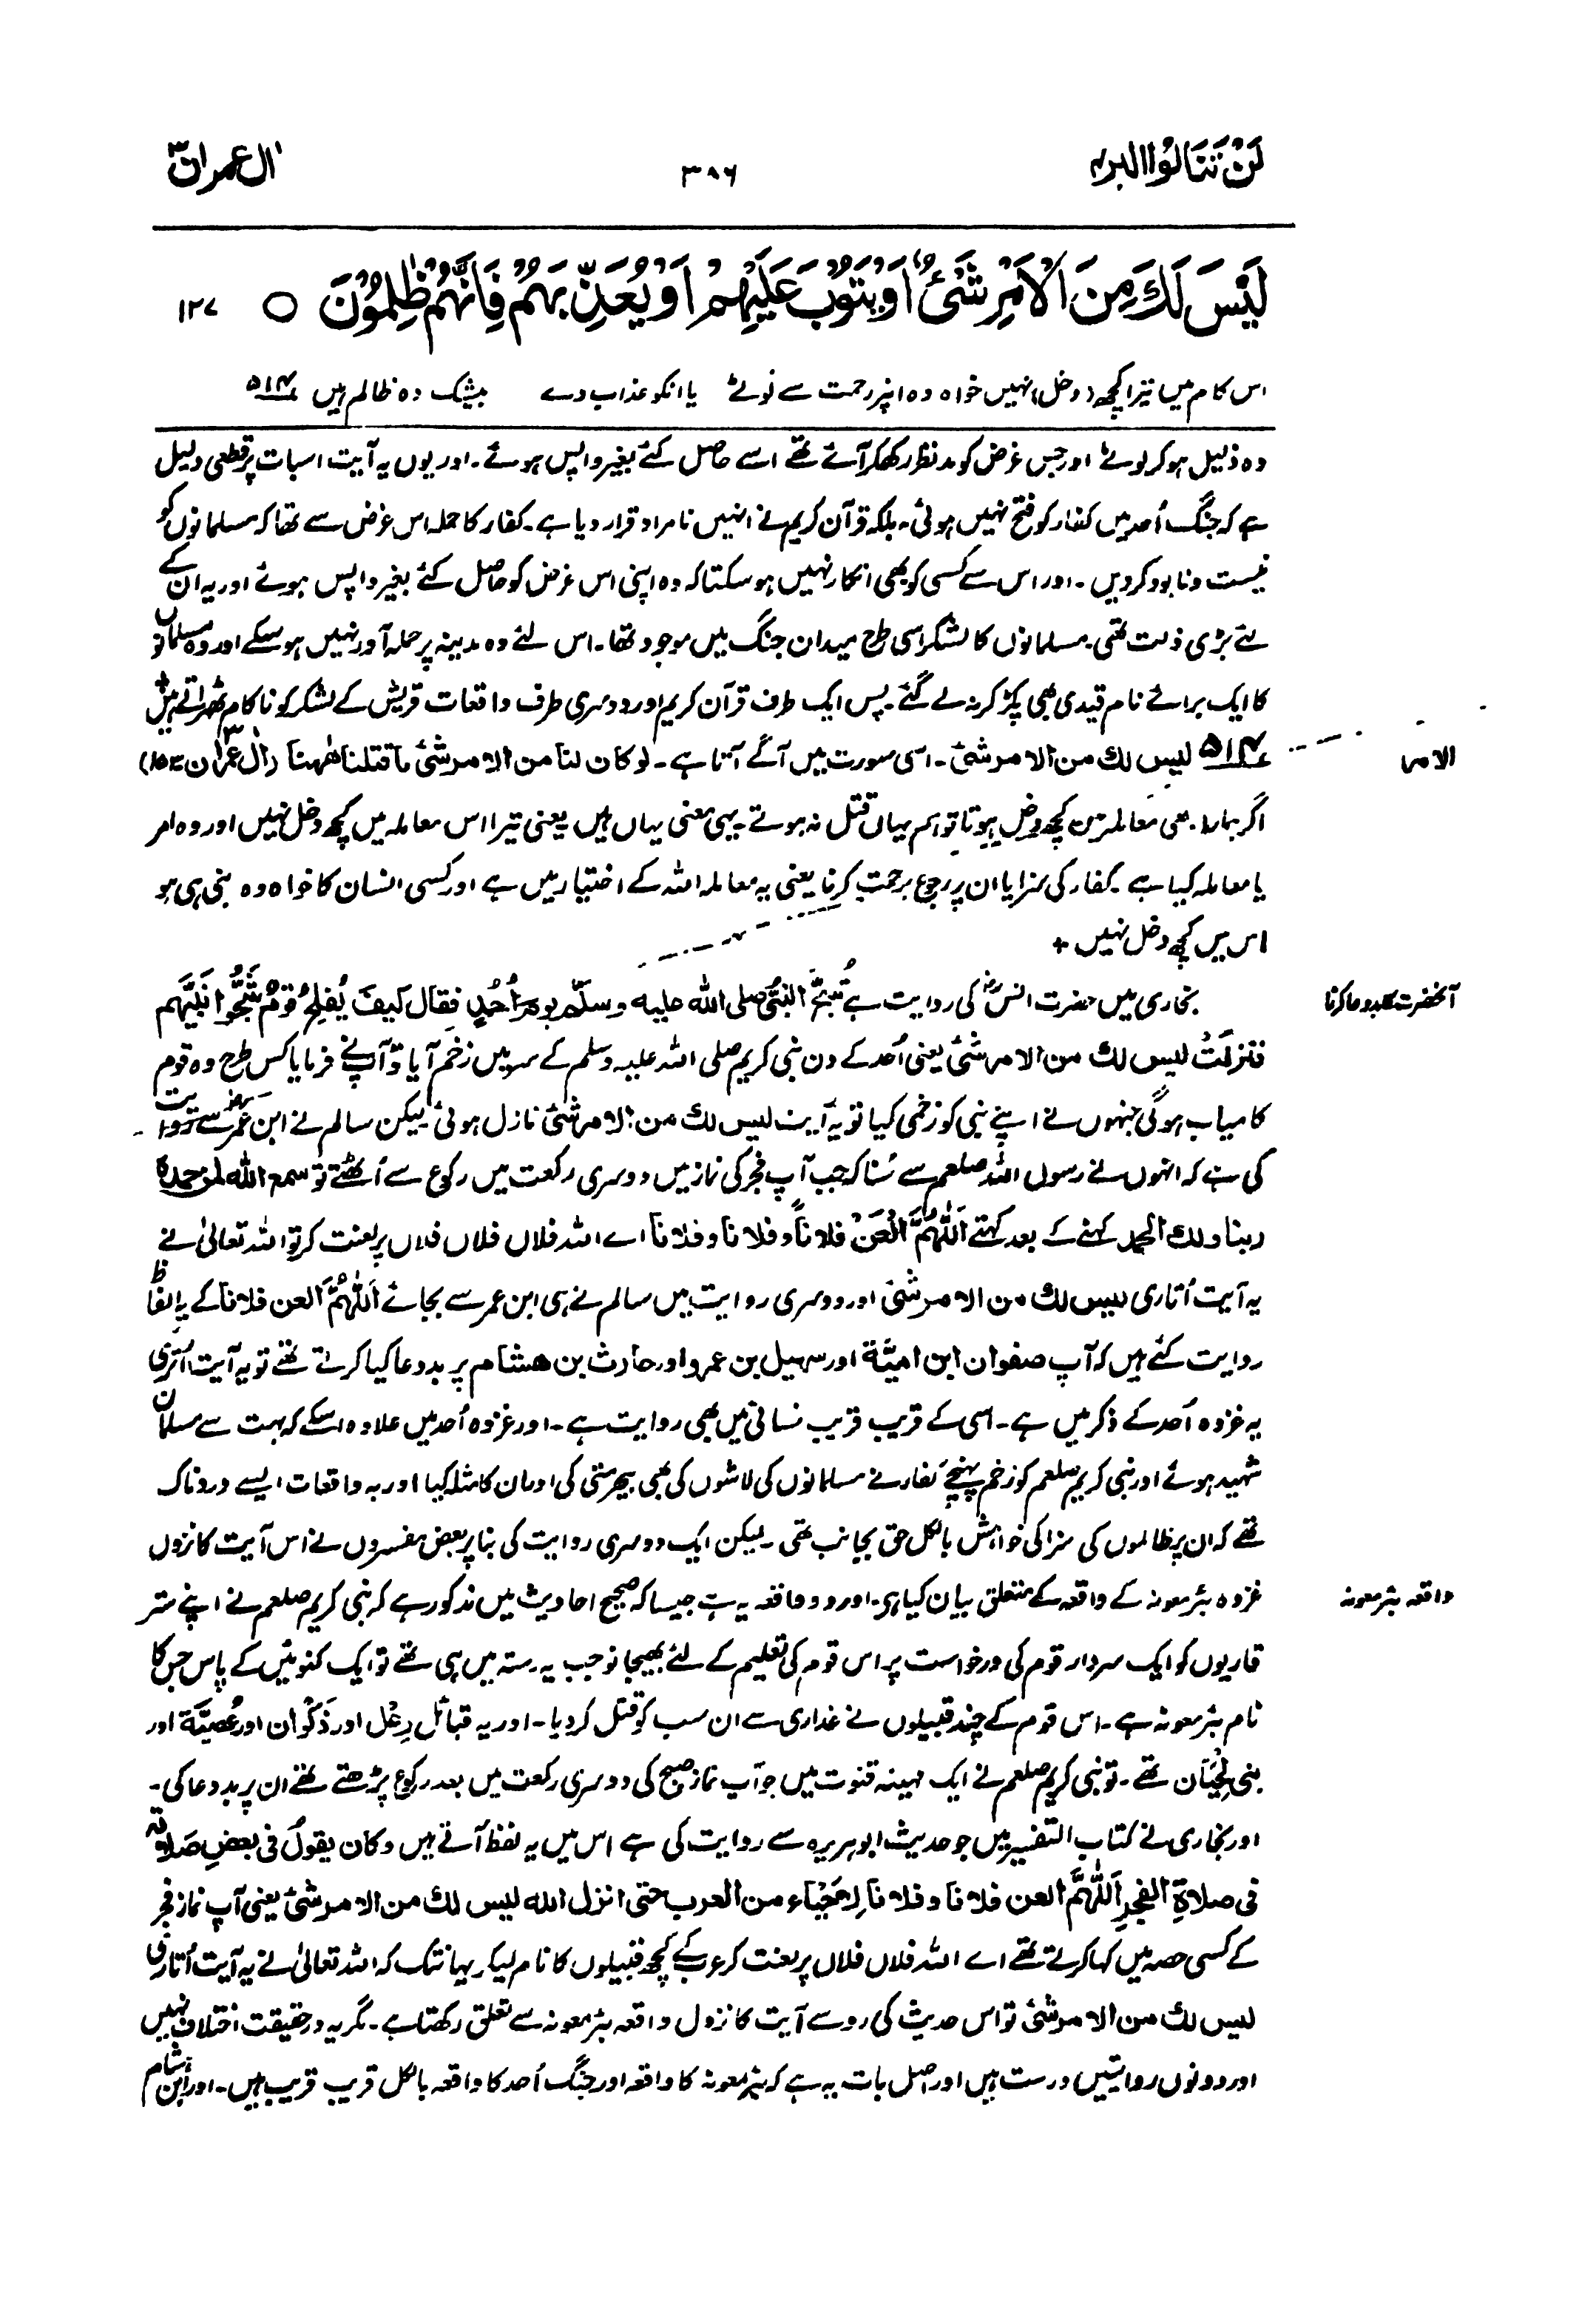 لَنْ تَنَالُوا البر ۴
۳۸۶
اٰل عمران ۳
لَيْسَ لَكَ مِنَ الْاَمْرِ شَيْءٌ اَوْ يَتُوْبَ عَلَيْهِمْ اَوْ يُعَذِّبَهُمْ فَاِنَّهُمْ ظٰلِمُوْنَ ○ ۱۲۷
اس کام میں تیرا کچھ (دخل) نہیں خواہ وہ اُنپر رحمت سے لوٹے یا انکو عذاب دے بیشک وہ ظالم ہیں ۵۱۴
وہ ذلیل ہوکر لوٹے اور جس غرض کو مدنظر رکھکر آئے تھے اسے حاصل کئے بغیر واپس ہوئے۔ اور یوں یہ آیت اسبات پر قطعی دلیل
ہے کہ جنگ اُحد میں کفار کو فتح نہیں ہوئی۔ بلکہ قرآن کریم نے انہیں نامراد قرار دیا ہے۔ کفار کا حملہ اس غرض سے تھا کہ مسلمانوں کو
نیست ونابود کردیں۔ اور اس سے کسی کو بھی انکار نہیں ہوسکتا کہ وہ اپنی اس غرض کو حاصل کئے بغیر واپس ہوئے اور یہ ان کے
لئے بڑی ذلت تھی۔ مسلمانوں کا لشکر اسی طرح میدان جنگ میں موجود تھا۔ اس لئے وہ مدینہ پر حملہ آور نہیں ہوسکے اور وہ مسلمانوں
کا ایک برائے نام قیدی بھی پکڑ کر نہ لے گئے۔ پس ایک طرف قرآن کریم اور دوسری طرف واقعات قریش کے لشکر کو ناکام ٹھہراتے ہیں +
الامر
۵۱۴ لیس لك من الامر شئ۔ اسی سورت میں آگے آتا ہے۔ لوکان لنا من الامر شئ ماقتلنا ھٰھنا (اٰل عمران ۱۵۳)
اگر ہمارا بھی معاملہ میں کچھ دخل ہوتا تو ہم یہاں قتل نہ ہوتے یہی معنی یہاں ہیں یعنی تیرا اس معاملہ میں کچھ دخل نہیں اور وہ امر
یا معاملہ کیا ہے۔ کفار کی سزا یا ان پر رجوع برحمت کرنا یعنی یہ معاملہ اللہ کے اختیار میں ہے اور کسی انسان کا خواہ وہ نبی ہی ہو
اس میں کچھ دخل نہیں +
آنحضرت کا بددعا کرنا
بخاری میں حضرت انسؓ کی روایت ہے شُجَّ النبیُّ صلی اللہ علیہ وسلّم یوم اُحُدٍ فقال کیفَ یُفلِحُ قومٌ شَجُّوا نَبِیَّهم
فنزلَتْ لیس لك من الامر شئ یعنی اُحد کے دن نبی کریم صلی اللہ علیہ وسلم کے سر میں زخم آیا تو آپ نے فرمایا کس طرح وہ قوم
کامیاب ہوگی جنہوں نے اپنے نبی کو زخمی کیا تو یہ آیت لیس لك من الامر شئ نازل ہوئی لیکن سالم نے ابن عمرؓ سے روایت
کی ہے کہ انہوں نے رسول اللہ صلعم سے سُنا کہ جب آپ فجر کی نماز میں دوسری رکعت میں رکوع سے اُٹھتے تو سمع اللہ لمن حمدہ
ربنا ولك الحمد کہنے کے بعد کہتے اَللّٰهُمَّ الْعَنْ فلاناً و فلانا و فلانا اے اللہ فلاں فلاں فلاں پر لعنت کر تو اللہ تعالیٰ نے
یہ آیت اُتاری لیس لك من الامر شئ اور دوسری روایت میں سالم نے ہی ابن عمر سے بجائے اَللّٰهُمَّ العن فلانا کے یہ الفاظ
روایت کئے ہیں کہ آپ صفوان ابن امیّة اور سهیل بن عمرو اور حارث بن هشام پر بددعا کیا کرتے تھے تو یہ آیت اُتری
یہ غزوہ اُحد کے ذکر میں ہے۔ اسی کے قریب قریب نسائی میں بھی روایت ہے۔ اور غزوہ اُحد میں علاوہ اسکے کہ بہت سے مسلمان
شہید ہوئے اور نبی کریم صلعم کو زخم پہنچے کفار نے مسلمانوں کی لاشوں کی بھی بیحرمتی کی اور ان کا مثلہ کیا اور یہ واقعات ایسے دردناک
تھے کہ ان پر ظالموں کی سزا کی خواہش بالکل حق بجانب تھی۔ لیکن ایک دوسری روایت کی بنا پر بعض مفسروں نے اس آیت کا نزول
واقعہ بئر معونہ
غزوہ بئر معونہ کے واقعہ کے متعلق بیان کیا ہی۔ اور وہ واقعہ یہ ہے جیسا کہ صحیح احادیث میں مذکور ہے کہ نبی کریم صلعم نے اپنے ستر
قاریوں کو ایک سردار قوم کی درخواست پر اس قوم کی تعلیم کے لئے بھیجا تو جب یہ رستہ میں ہی تھے تو ایک کنوئیں کے پاس جس کا
نام بئر معونہ ہے۔ اس قوم کے چند قبیلوں نے غداری سے ان سب کو قتل کردیا۔ اور یہ قبائل رِعْل اور ذَکْوان اور عُصَیَّة اور
بنی لِحْیَان تھے۔ تو نبی کریم صلعم نے ایک مہینہ قنوت میں جو آپ نماز صبح کی دوسری رکعت میں بعد رکوع پڑھتے تھے ان پر بددعا کی۔
اور بخاری نے کتاب التفسیر میں جو حدیث ابوہریرہ سے روایت کی ہے اس میں یہ لفظ آتے ہیں وکان یقولُ فی بعضِ صَلاتِه
فی صلاةِ الفجرِ اَللّٰهُمَّ العن فلانا و فلانا لِاَحْیَاء من العرب حتی انزل اللہ لیس لك من الامر شئ یعنی آپ نماز فجر
کے کسی حصہ میں کہا کرتے تھے اے اللہ فلاں فلاں پر لعنت کر عرب کے کچھ قبیلوں کا نام لیکر یہانتک کہ اللہ تعالیٰ نے یہ آیت اُتاری
لیس لك من الامر شئ تو اس حدیث کی رو سے آیت کا نزول واقعہ بئر معونہ سے تعلق رکھتا ہے۔ مگر یہ درحقیقت اختلاف نہیں
اور دونوں روایتیں درست ہیں اور اصل بات یہ ہے کہ بئر معونہ کا واقعہ اور جنگ اُحد کا واقعہ بالکل قریب قریب ہیں۔ اور ابن ہشام